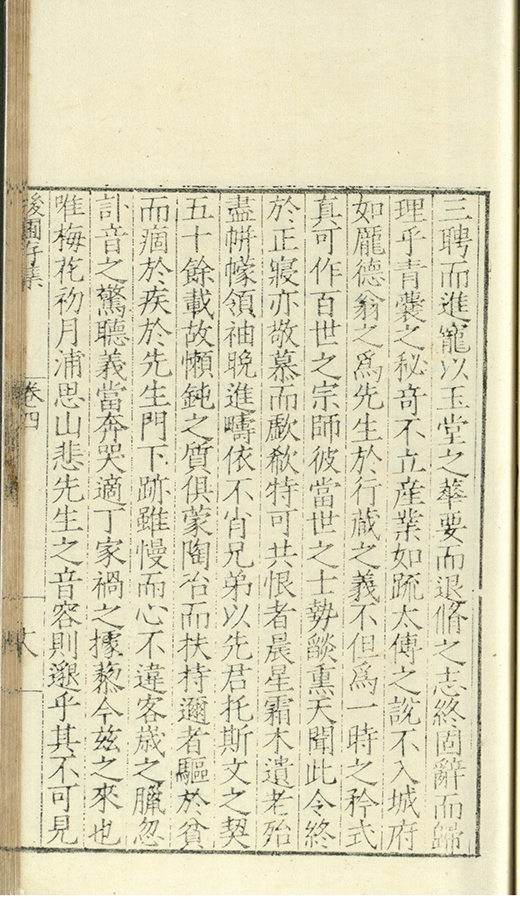 三聘而進寵以玉堂之華要而退脩之志終固辭而歸
理乎青囊之秘奇不立産業如疏太傅之說不入城府
如龐德翁之爲先生於行蔵之義不但爲一時之矜式
真可作百世之宗師彼當世之士勢燄熏天聞此令終
於正寝亦敬慕而歔欷特可共恨者晨星霜木遺老殆
盡帡幪領袖晚進疇依不肖兄弟以先君托斯文之契
五十餘載故懶鈍之質俱蒙陶冶而扶持邇者驅於貧
而痼於疾於先生門下跡雖慢而心不違客歳之臘忽
訃音之驚聽義當奔哭適丁家禍之據蔾今玆之來也
唯梅花初月浦思山悲先生之音容則邈乎其不可見
後圃存集 卷四